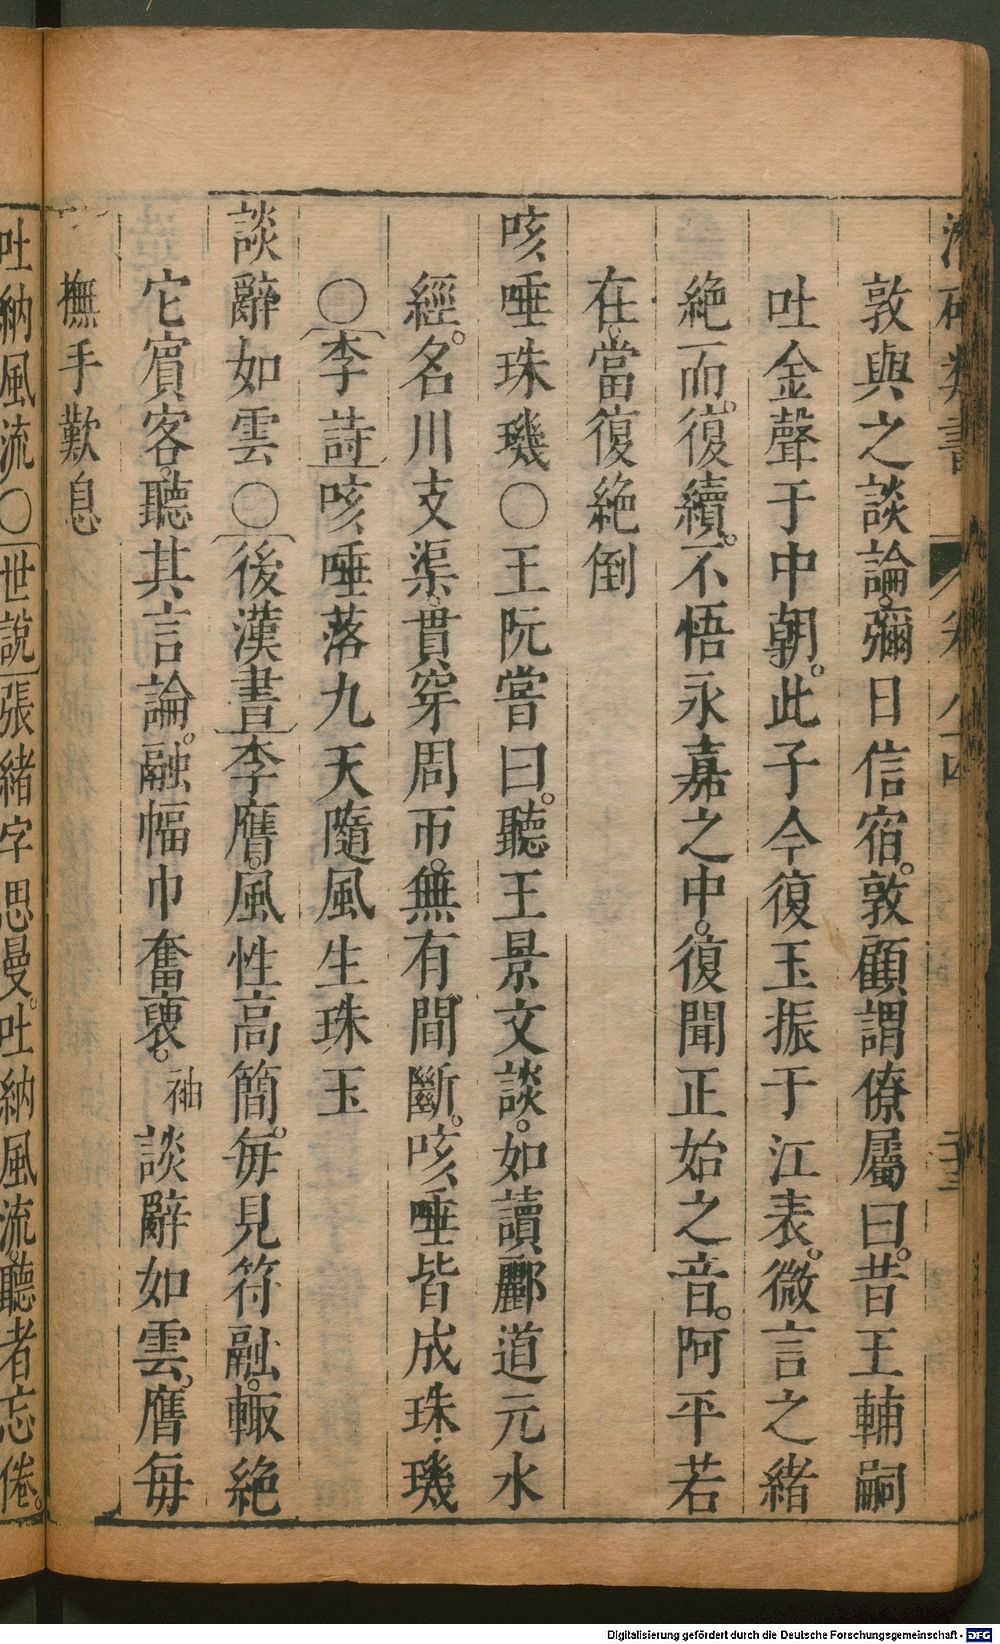 敦與之談論。彌日信宿。敦顧謂僚屬曰。昔王輔嗣
吐金聲于中朝。此子今復玉振于江表。微言之緒
絶而。復續。不悟永嘉之中。復聞正始之音。阿平若
在。當復絶倒
咳唾珠璣○王阮嘗曰。聽王景文談。如讀酈道元水
經。名川支渠。貫穿周帀。無有間斷。咳唾皆成珠璣
○李詩咳唾落九天隨風生珠玉
談辭如雲○後漢書李膺。風性高簡。毎見符融。輙絶
它賓客。聽其言論。融幅巾奮褏。袖談辭如雲。膺毎
撫手歎息
吐納風流○世說張緒字思曼。吐納風流。聽者忘倦。
Digitalisierung gefördert durch die Deutsche Forschungsgemeinschaft - DFG